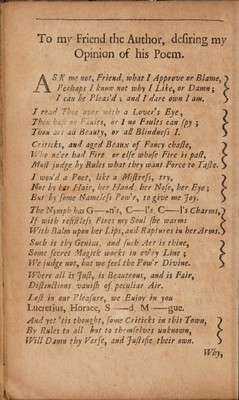 To my Friend the Author, desiring my
Opinion of his Poem.
ASK me not, Friend, what I Approve or Blame,
Perhaps I know not why I Like, or Damn;
I can be Pleas'd; and I dare own I am.
I read Thee over with a Lover's Eye,
Thou hast no Faults, or I no Faults can spy;
Thou art all Beauty, or all Blindness I.
Criticks, and aged Beaux of Fancy chaste,
Who ne'er had Fire or else whose Fire is past,
Must judge by Rules what they want Force to Taste.
I wou'd a Poet, like a Mistress, try,
Not by her Hair, her Hand, her Nose, her Eye;
But by some Nameless Pow'r, to give me Joy.
The Nymph has G——n's, C—l's C——l's Charms,
If with resistless Fires my Soul she warms
With Balm upon her Lips, and Raptures in her Arms.
Such is thy Genius, and such Art is thine,
Some secret Magick works in ev'ry Line;
We judge not, but we feel the Pow'r Divine.
Where all is Just, is Beauteous, and is Fair,
Distinctions vanish of peculiar Air.
Lost in our Pleasure, we Enjoy in you
Lucretius, Horace, S——d, M——gue.
And yet 'tis thought, some Criticks in this Town,
By Rules to all but to themselves unknown,
Will Damn thy Verse, and Justifie their own.
Why,